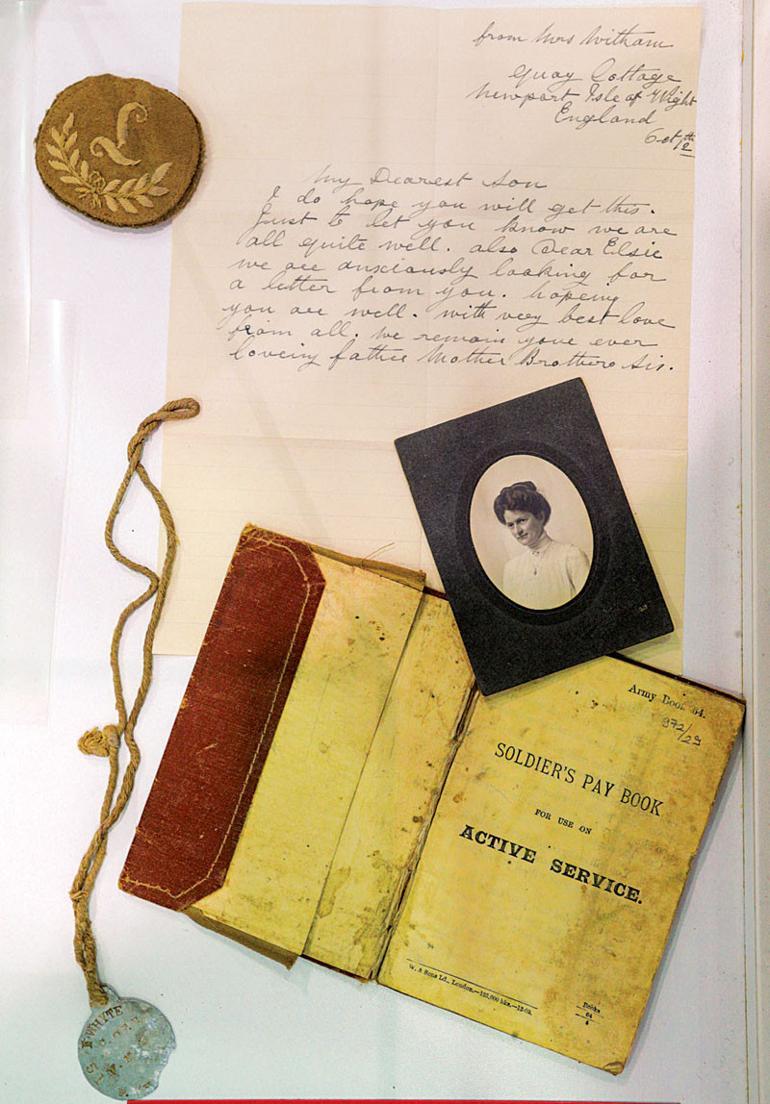 L
from Mrs Witham
Quay Cottage
Newport Isle of Wight
England
Oct 12th
My Dearest Son
I do hope you will get this.
Just to let you know we are
all quite well. also Dear Elsie
we are anxiously looking for
a letter from you. hopeing
you are well. with very best love
from all. we remain your ever
loveing father Mother Brothers Sis.
Army Book 64.
972/29
SOLDIER'S PAY BOOK
FOR USE ON
ACTIVE SERVICE.
W. & Sons Ld., London.
WHYTE